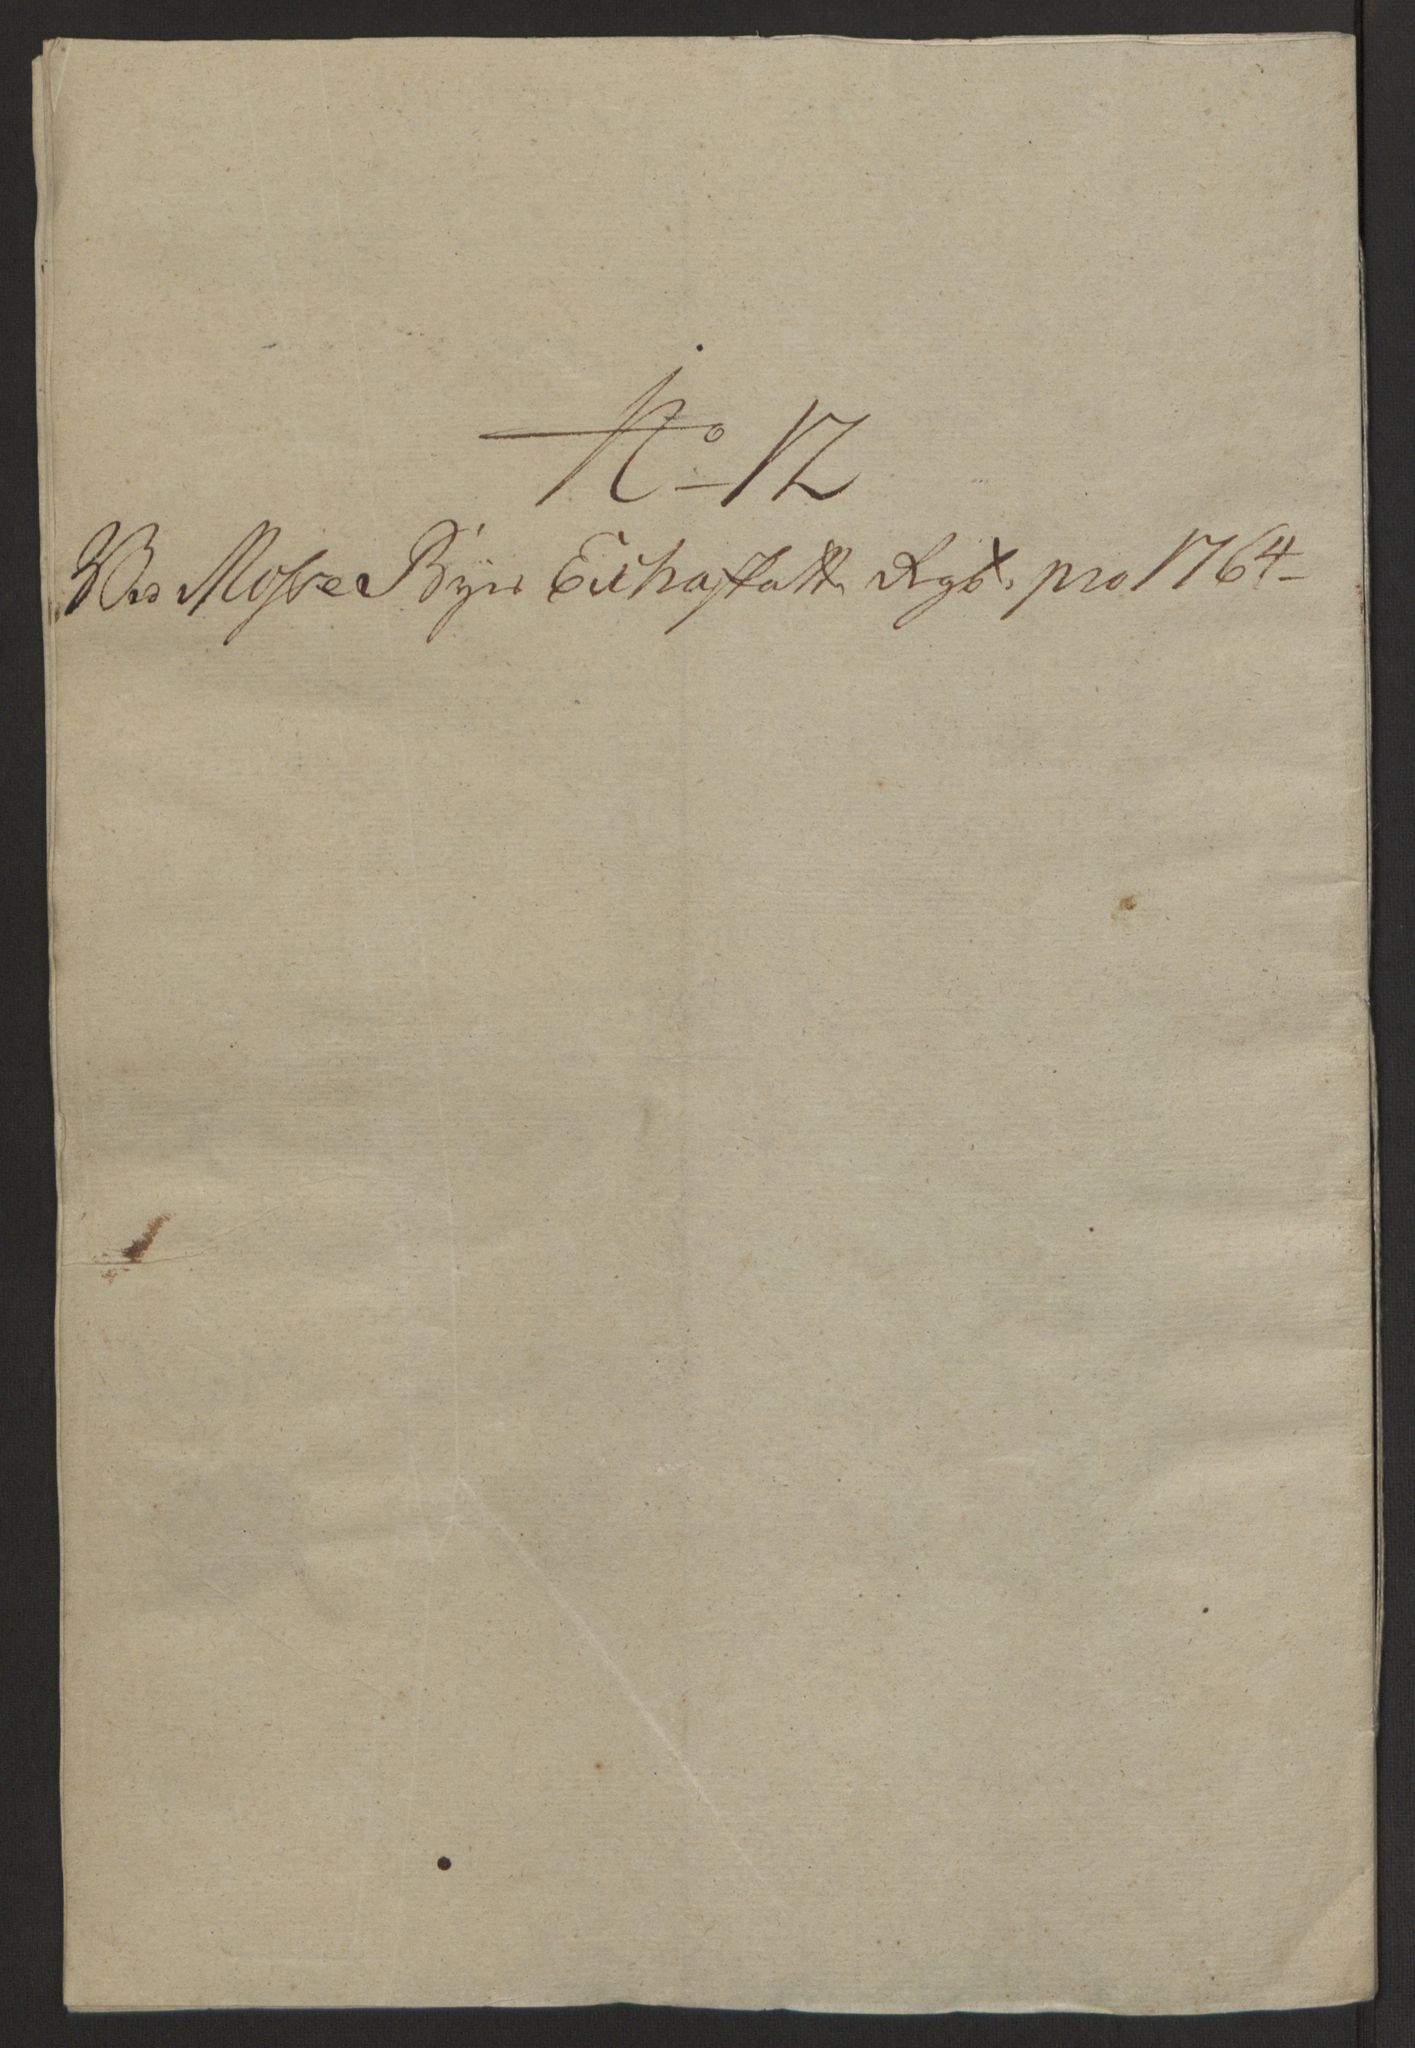 No 12
Mosse Byes Extraskatt Rgbr. pro 1764